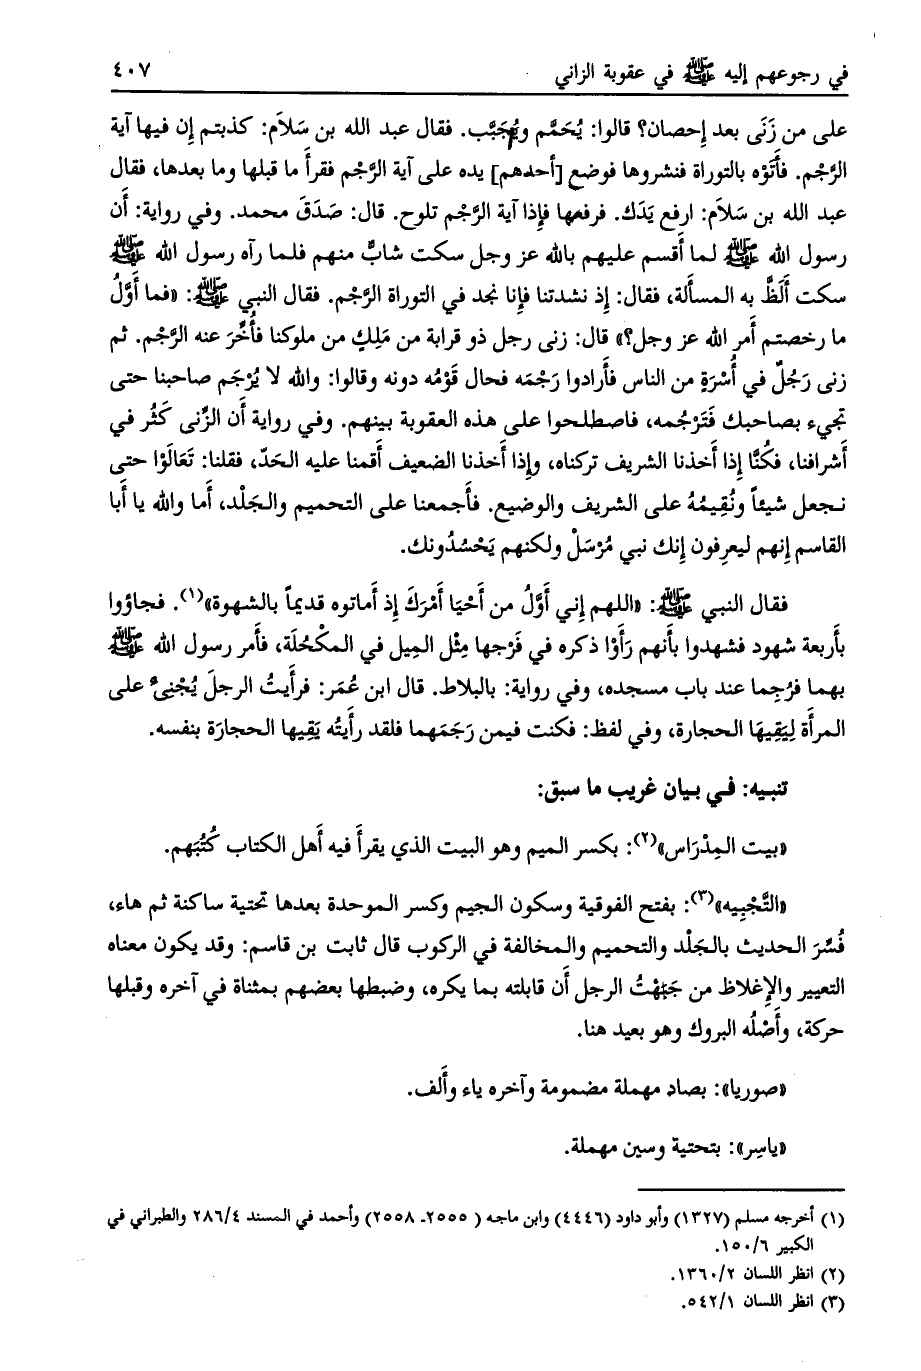 في رجوعهم إليه ﷺ في عقوبة الزاني ٤٠٧
على من زَنَى بعد إحصان؟ قالوا: يُحَمَّم ويُجَبَّب. فقال عبد الله بن سَلاَم: كذبتم إن فيها آية
الرَّجْم. فأَتَوْه بالتوراة فنشروها فوضع [أحدهم] يده على آية الرَّجْم فقرأ ما قبلها وما بعدها، فقال
عبد الله بن سَلاَم: ارفع يَدَك. فرفعها فإذا آية الرَّجْم تلوح. قال: صَدَقَ محمد. وفي رواية: أن
رسول الله ﷺ لما أَقسم عليهم بالله عز وجل سكت شابٌّ منهم فلما رآه رسول الله ﷺ
سكت أَلَظَّ به المسألة، فقال: إِذ نشدتنا فإنا نجد في التوراة الرَّجْم. فقال النبي ﷺ: «فما أَوَّلُ
ما رخصتم أَمر الله عز وجل؟» قال: زنى رجل ذو قرابة من مَلِكٍ من ملوكنا فأُخِّرَ عنه الرَّجْم. ثم
زنى رَجُلٌ في أُسْرَةٍ من الناس فأَرادوا رَجْمَه فحال قَوْمُه دونه وقالوا: والله لا يُرْجَم صاحبنا حتى
تجيء بصاحبك فَتَرْجُمه، فاصطلحوا على هذه العقوبة بينهم. وفي رواية أن الزِّنى كَثُر في
أَشرافنا، فكُنَّا إذا أخذنا الشريف تركناه، وإذا أخذنا الضعيف أقمنا عليه الحَدّ، فقلنا: تَعَالَوْا حتى
نجعل شيئاً ونُقِيمُهُ على الشريف والوضيع. فأَجمعنا على التحميم والجَلْد، أما والله يا أبا
القاسم إنهم ليعرفون إنك نبي مُرْسَلْ ولكنهم يَحْسُدُونك.
فقال النبي ﷺ: «اللهم إني أَوَّلُ من أَحْيَا أَمْرَكَ إذ أَماتوه قديماً بالشهوة»(١). فجاؤوا
بأَربعة شهود فشهدوا بأنهم رَأَوْا ذكره في فَرْجها مِثْل الميل في المكْحُلَة، فأَمر رسول الله ﷺ
بهما فرُجِما عند باب مسجده، وفي رواية: بالبلاط. قال ابن عُمَر: فرأَيتُ الرجلَ يُجْنِئُ على
المرأَة لِيَقِيهَا الحجارة، وفي لفظ: فكنت فيمن رَجَمَهما فلقد رأَيتُه يَقِيها الحجارَة بنفسه.
تنبيه: في بيان غريب ما سبق:
«بيت المِدْرَاس»(٢): بكسر الميم وهو البيت الذي يقرأَ فيه أهل الكتاب كُتُبَهم.
«التَّجْبِيه»(٣): بفتح الفوقية وسكون الجيم وكسر الموحدة بعدها تحتية ساكنة ثم هاء،
فُسِّرَ الحديث بالجَلْد والتحميم والمخالفة في الركوب قال ثابت بن قاسم: وقد يكون معناه
التعيير والإغلاظ من جَبَهْتُ الرجل أَن قابلته بما يكره، وضبطها بعضهم بمثناة في آخره وقبلها
حركة، وأَصْلُه البروك وهو بعيد هنا.
«صوريا»: بصاد مهملة مضمومة وآخره ياء وأَلف.
«ياسِر»: بتحتية وسين مهملة.
(١) أخرجه مسلم (١٣٢٧) وأبو داود (٤٤٤٦) وابن ماجه ( ٢٥٥٥- ٢٥٥٨) وأحمد في المسند ٢٨٦/٤ والطبراني في
الكبير ١٥٠/٦.
(٢) انظر اللسان ١٣٦٠/٢.
(٣) انظر اللسان ٥٤٢/١.